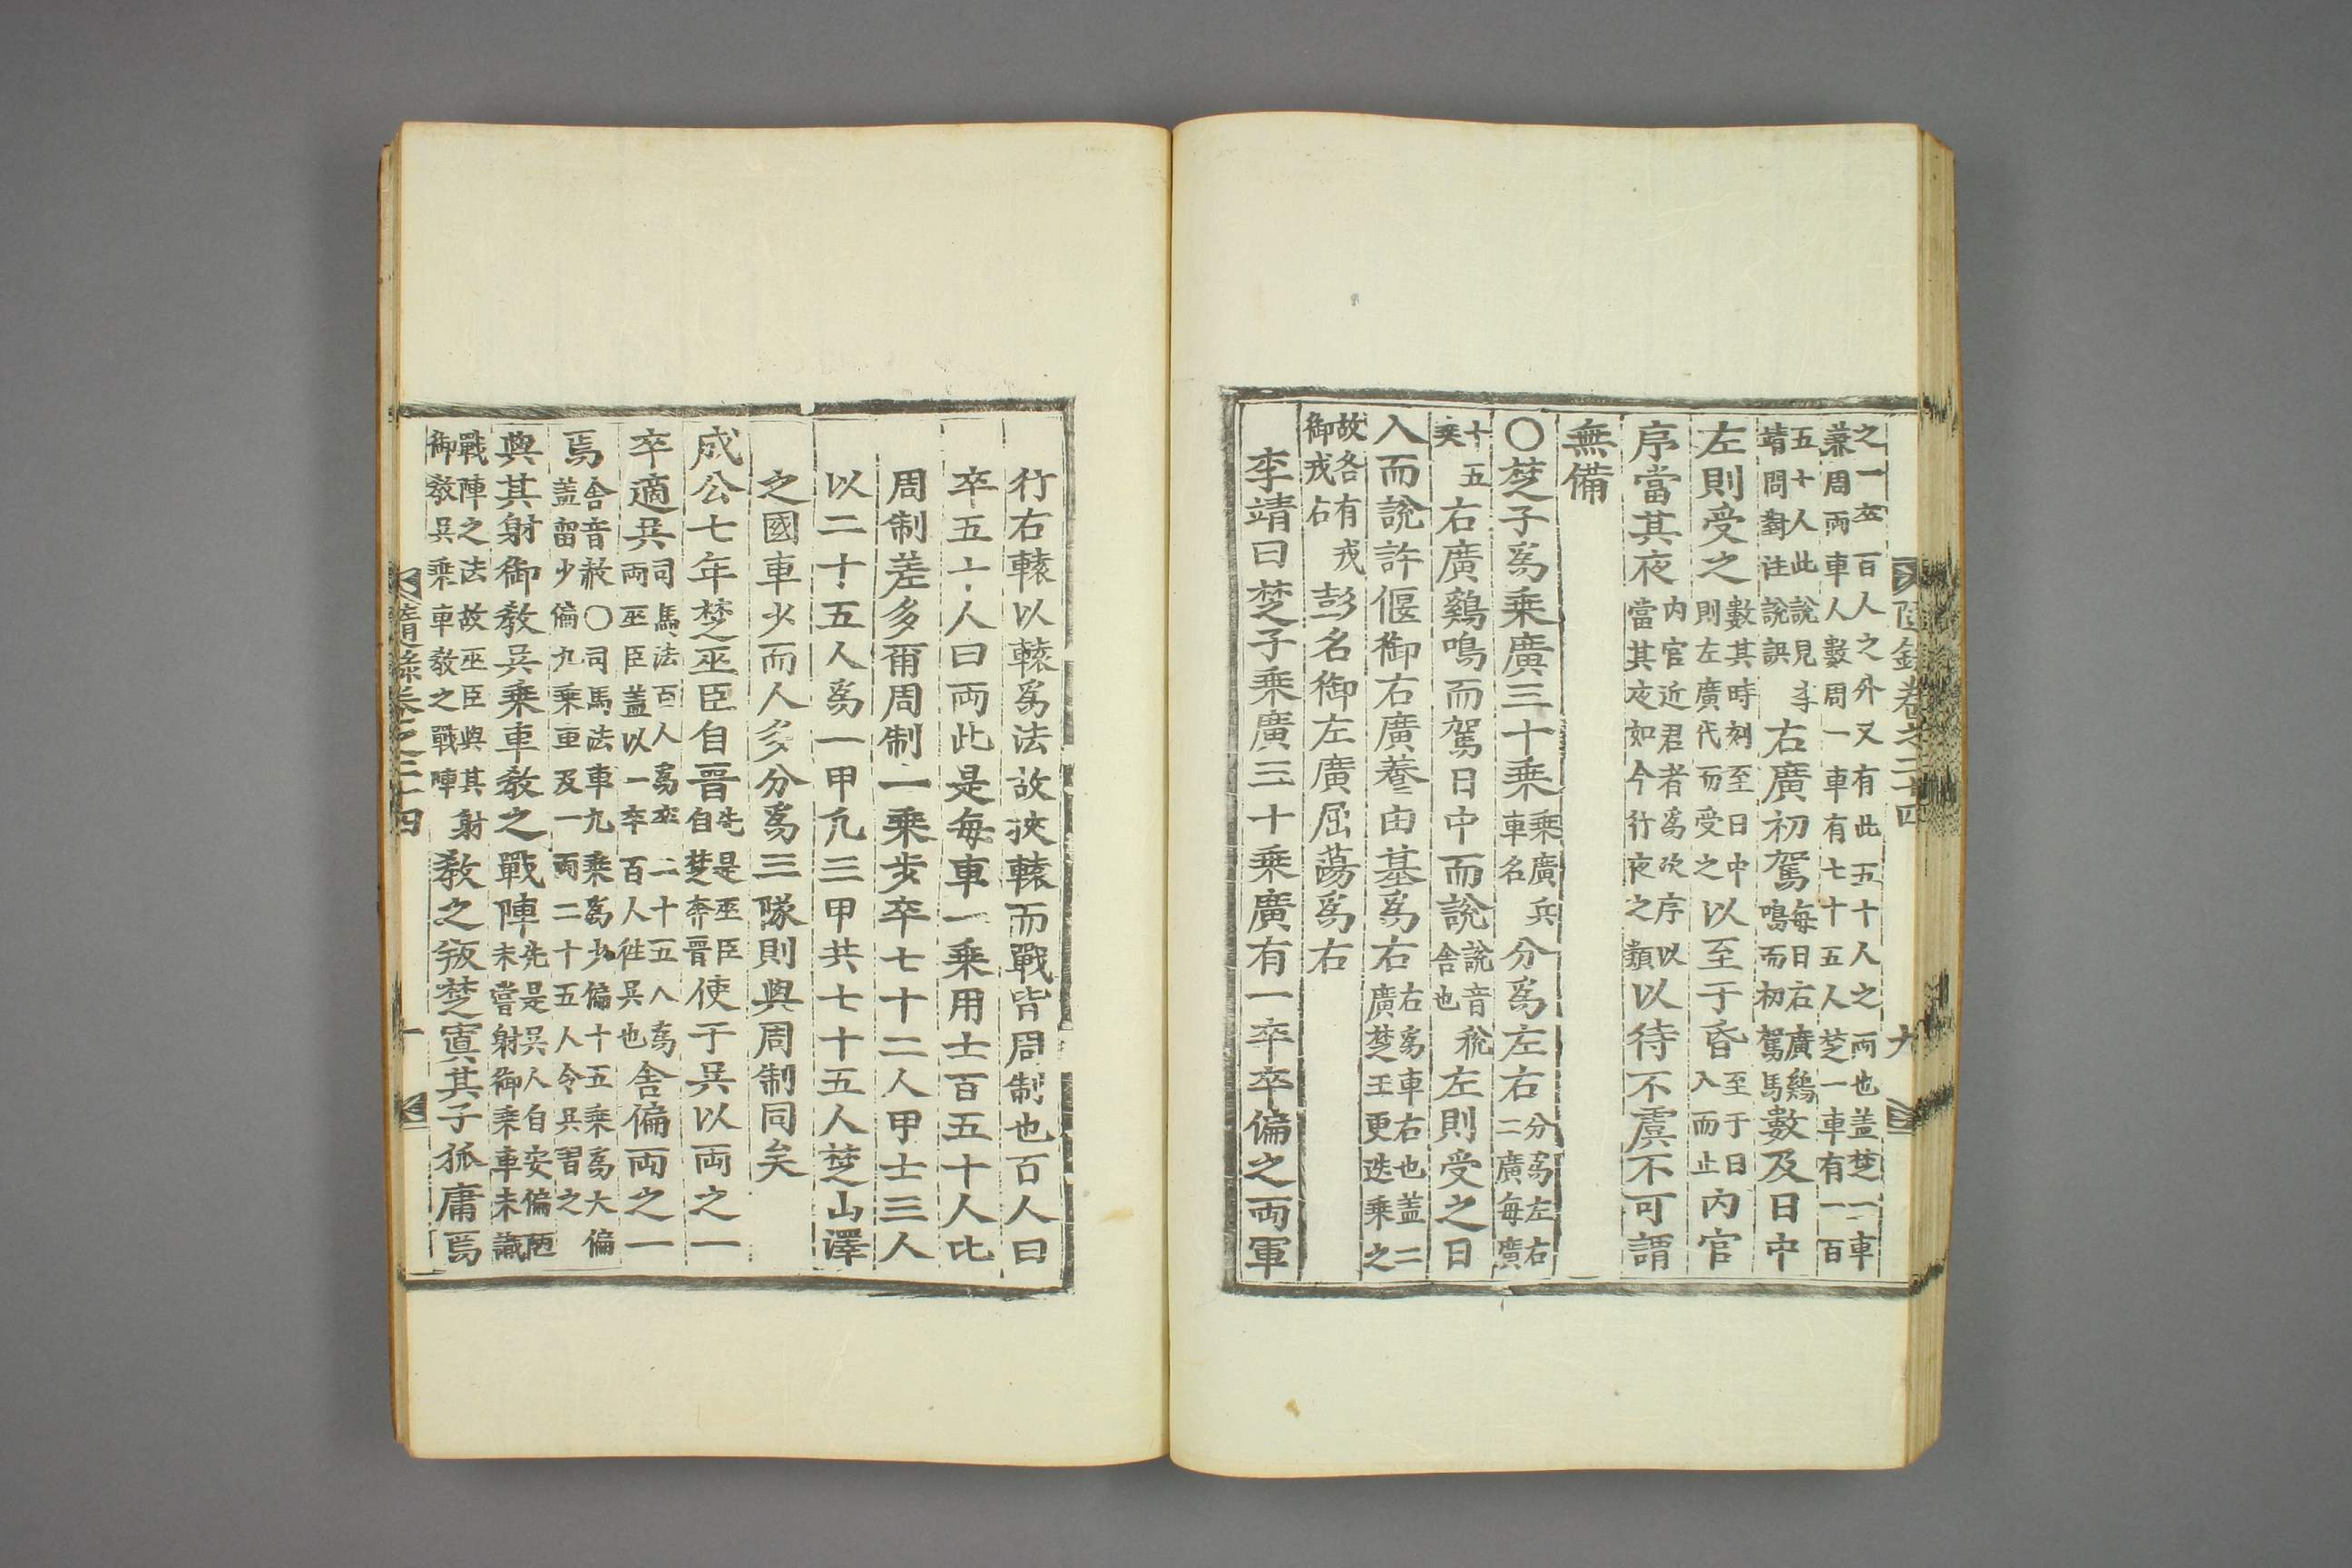 隨錄卷之二十四　九
之一卒百人之外又有此五十人之兩也盖楚一車
兼周兩車人數周一車有七十五人楚一車有一百
五十人此說見李
靖問對注說誤
右廣初駕
每日右廣鷄
鳴而初駕馬
數及日中
左則受之
數其時刻至日中
則左廣代而受之
以至于昏
至于日
入而止
內官
序當其夜
内官近君者爲次序以
當其夜如今行夜之類
以待不虞不可謂
無備
〇楚子爲乘廣三十乘
乘廣兵
車名
分爲左右
分爲左右
二廣每廣
十五
乘
右廣鷄鳴而駕日中而說
說音稅
舍也
左則受之日
入而說許偃御右廣養由基爲右
右爲車右也盖二
廣楚王更迭乘之
故各有戎
御戎右
彭名御左廣屈蕩爲右
李靖曰楚子乘廣三十乘廣有一卒卒偏之兩軍
行右轅以轅爲法故挾轅而戰皆周制也百人曰
卒五十人曰兩此是每車一乘用士百五十人比
周制差多爾周制一乘步卒七十二人甲士三人
以二十五人爲一甲凡三甲共七十五人楚山澤
之國車少而人多分爲三隊則與周制同矣
成公七年楚巫臣自晉
先是巫臣
自楚奔晉
使于吳以兩之一
卒適吳
司馬法百人爲卒二十五人爲
兩巫臣盖以一卒百人徃吳也
舍偏兩之一
焉
舍音赦〇司馬法車九乘爲少偏十五乘爲大偏
盖留少偏九乘車及一兩二十五人令吳習之
與其射御敎吳乘車敎之戰陣
先是吳人自安偏陋
未嘗射御乘車未識
戰陣之法故巫臣與其射
御敎吳乘車敎之戰陣
敎之叛楚寘其子狐庸焉
隨錄卷之二十四　十